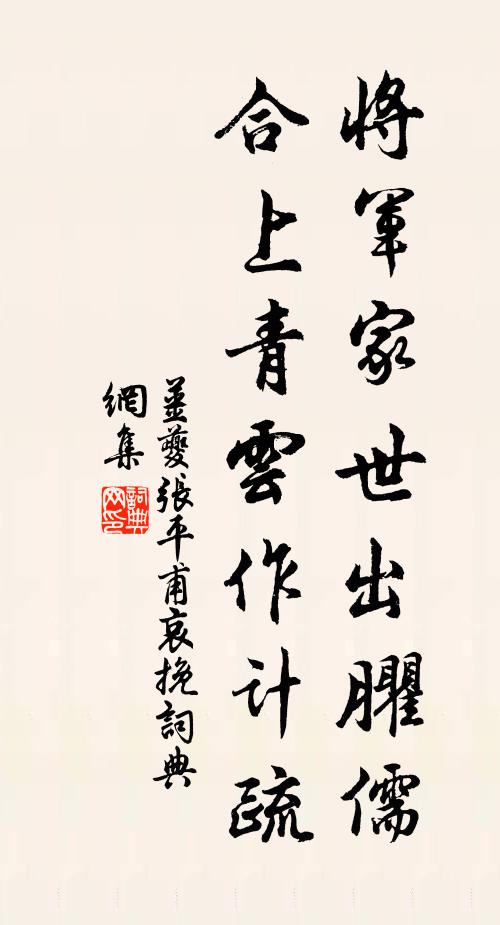 將軍家世出臞儒
合上青雲作計疏
姜夔張平甫哀挽詞典
網集
詞典网印